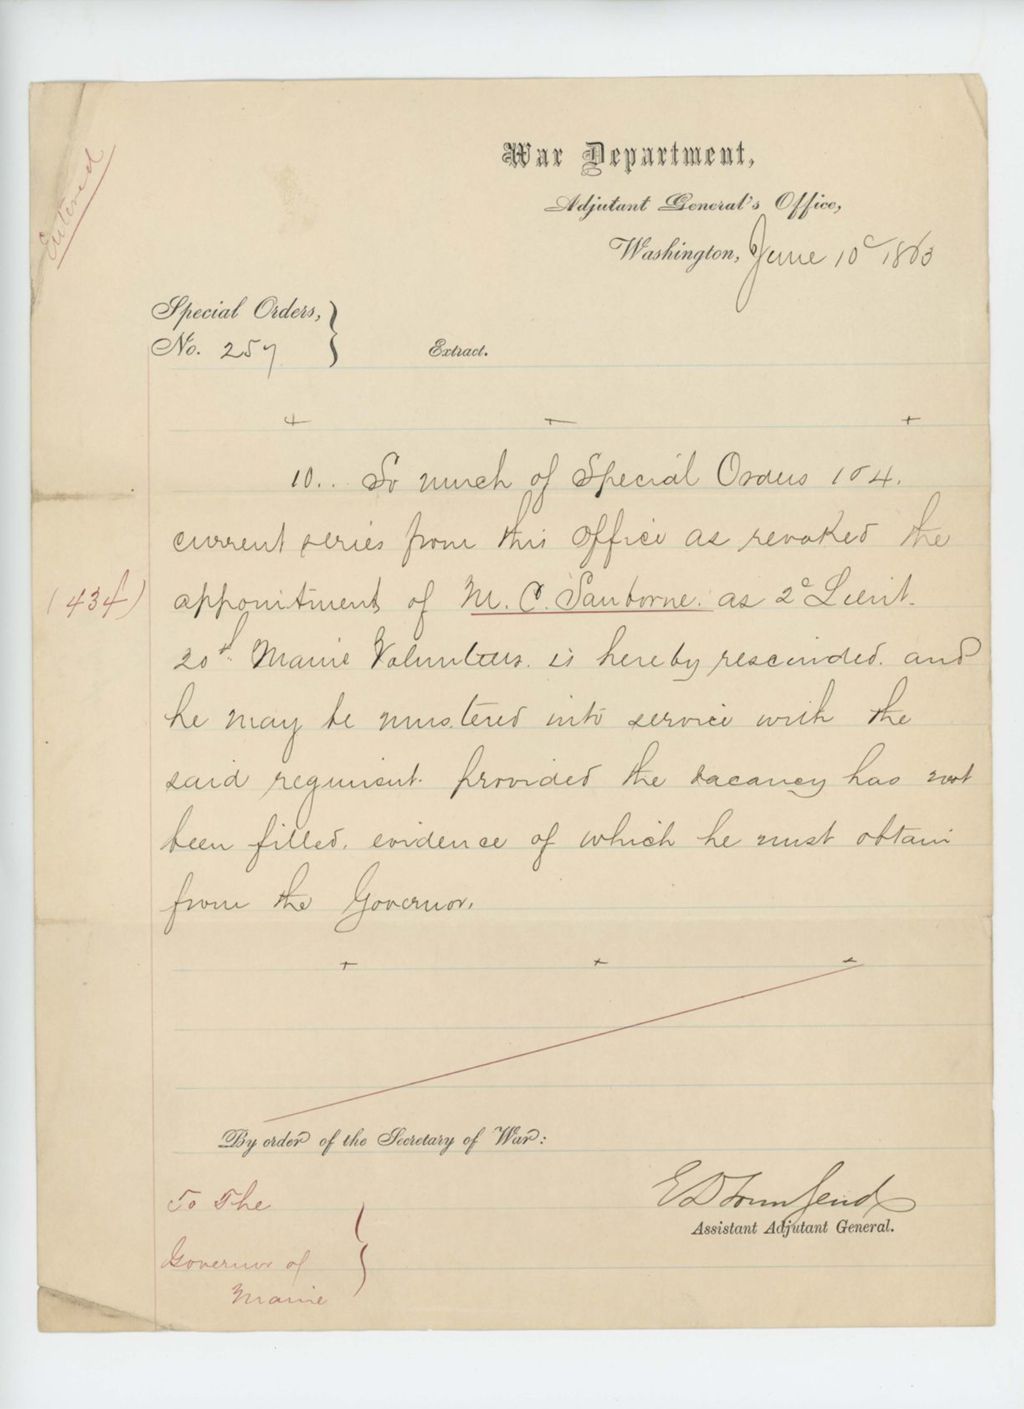 Entered
War Department,
Adjutant General's Office,
Washington, June 10th 1863
Special Orders,
No. 257
Extract.
+ + +
10.. So much of Special Orders 104.
current series from this office as revoked the
(434)
appointment of M. C. Sanborne. as 2d Lieut.
20th Maine Volunteers. is hereby rescinded. and
he may be mustered into service with the
said regiment. provided the vacancy has not
been filled. evidence of which he must obtain
from the Governor.
+ + +
By order of the Secretary of War:
E D Townsend
Assistant Adjutant General.
To The
Governor of
Maine